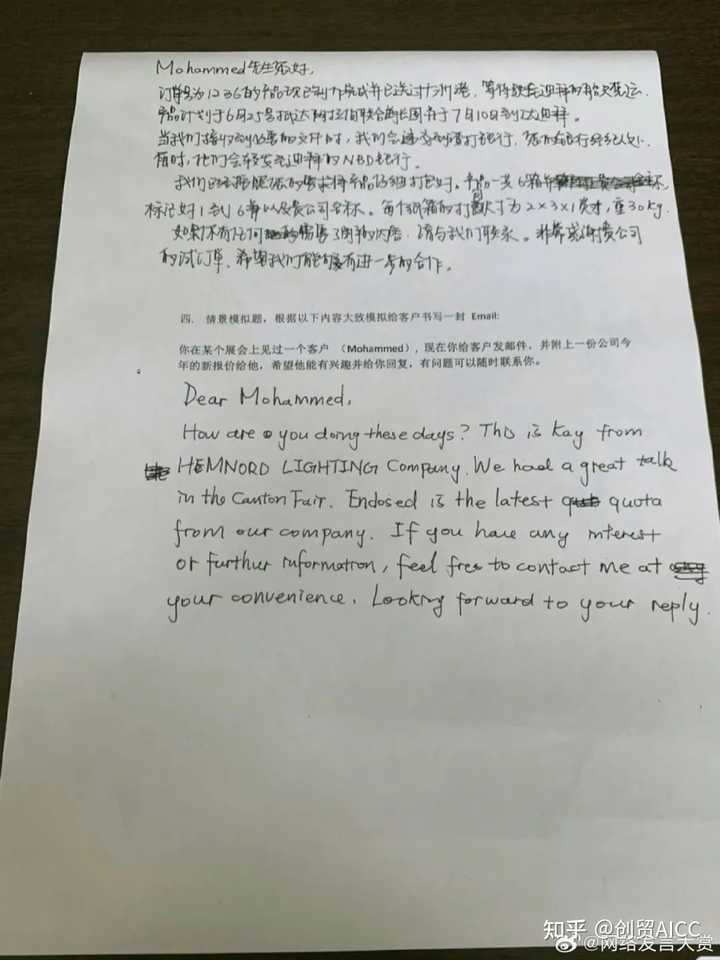 Mohammed先生您好,
订单号为1236的产品现已制作完成并已送过广州港,等待发往迪拜的船只装运.
产品计划于6月25号抵达阿拉伯联合酋长国 将于7月10日到达迪拜.
当我们接收到必要的文件时,我们会递交到渣打银行,
随时,他们会转发至迪拜的NBD银行.
我们已经按照您的要求将产品仔细打包好.产品一共6箱并
标记好1到6等以及贵公司名称。每个纸箱的打包尺寸为2×3×1英寸,重30kg.
如果还有任何需要了解的内容,请与我们联系。非常感谢贵公司
的试订单,希望我们能够有进一步的合作。
四. 情景模拟题,根据以下内容大致模拟给客户书写一封 Email:
你在某个展会上见过一个客户 (Mohammed),现在你给客户发邮件,并附上一份公司今
年的新报价给他,希望他能有兴趣并给你回复,有问题可以随时联系你。
Dear Mohammed,
How are you doing these days? This is Kay from
HEMNORD LIGHTING Company. We had a great talk
in the Canton Fair. Endosed is the latest quota
from our company. If you have any interest
or further information, feel free to contact me at
your convenience. Looking forward to your reply.
知乎 @创贸AICC
@网络发言大赏